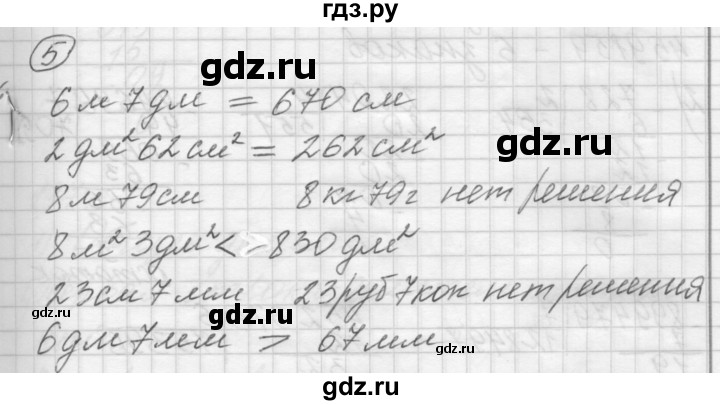 гдз.ру
5
gdz.ru
6 м 7 дм = 670 см
2 дм² 62 см² = 262 см²
gdz.ru
8 м 79 см 8 кг 79 г нет решения
8 м² 3 дм² < 830 дм²
23 см 7 мм 23 руб 7 коп нет решения
gdz.ru
gdz.ru
6 дм 7 мм > 67 мм
gdz.ru
gdz.ru